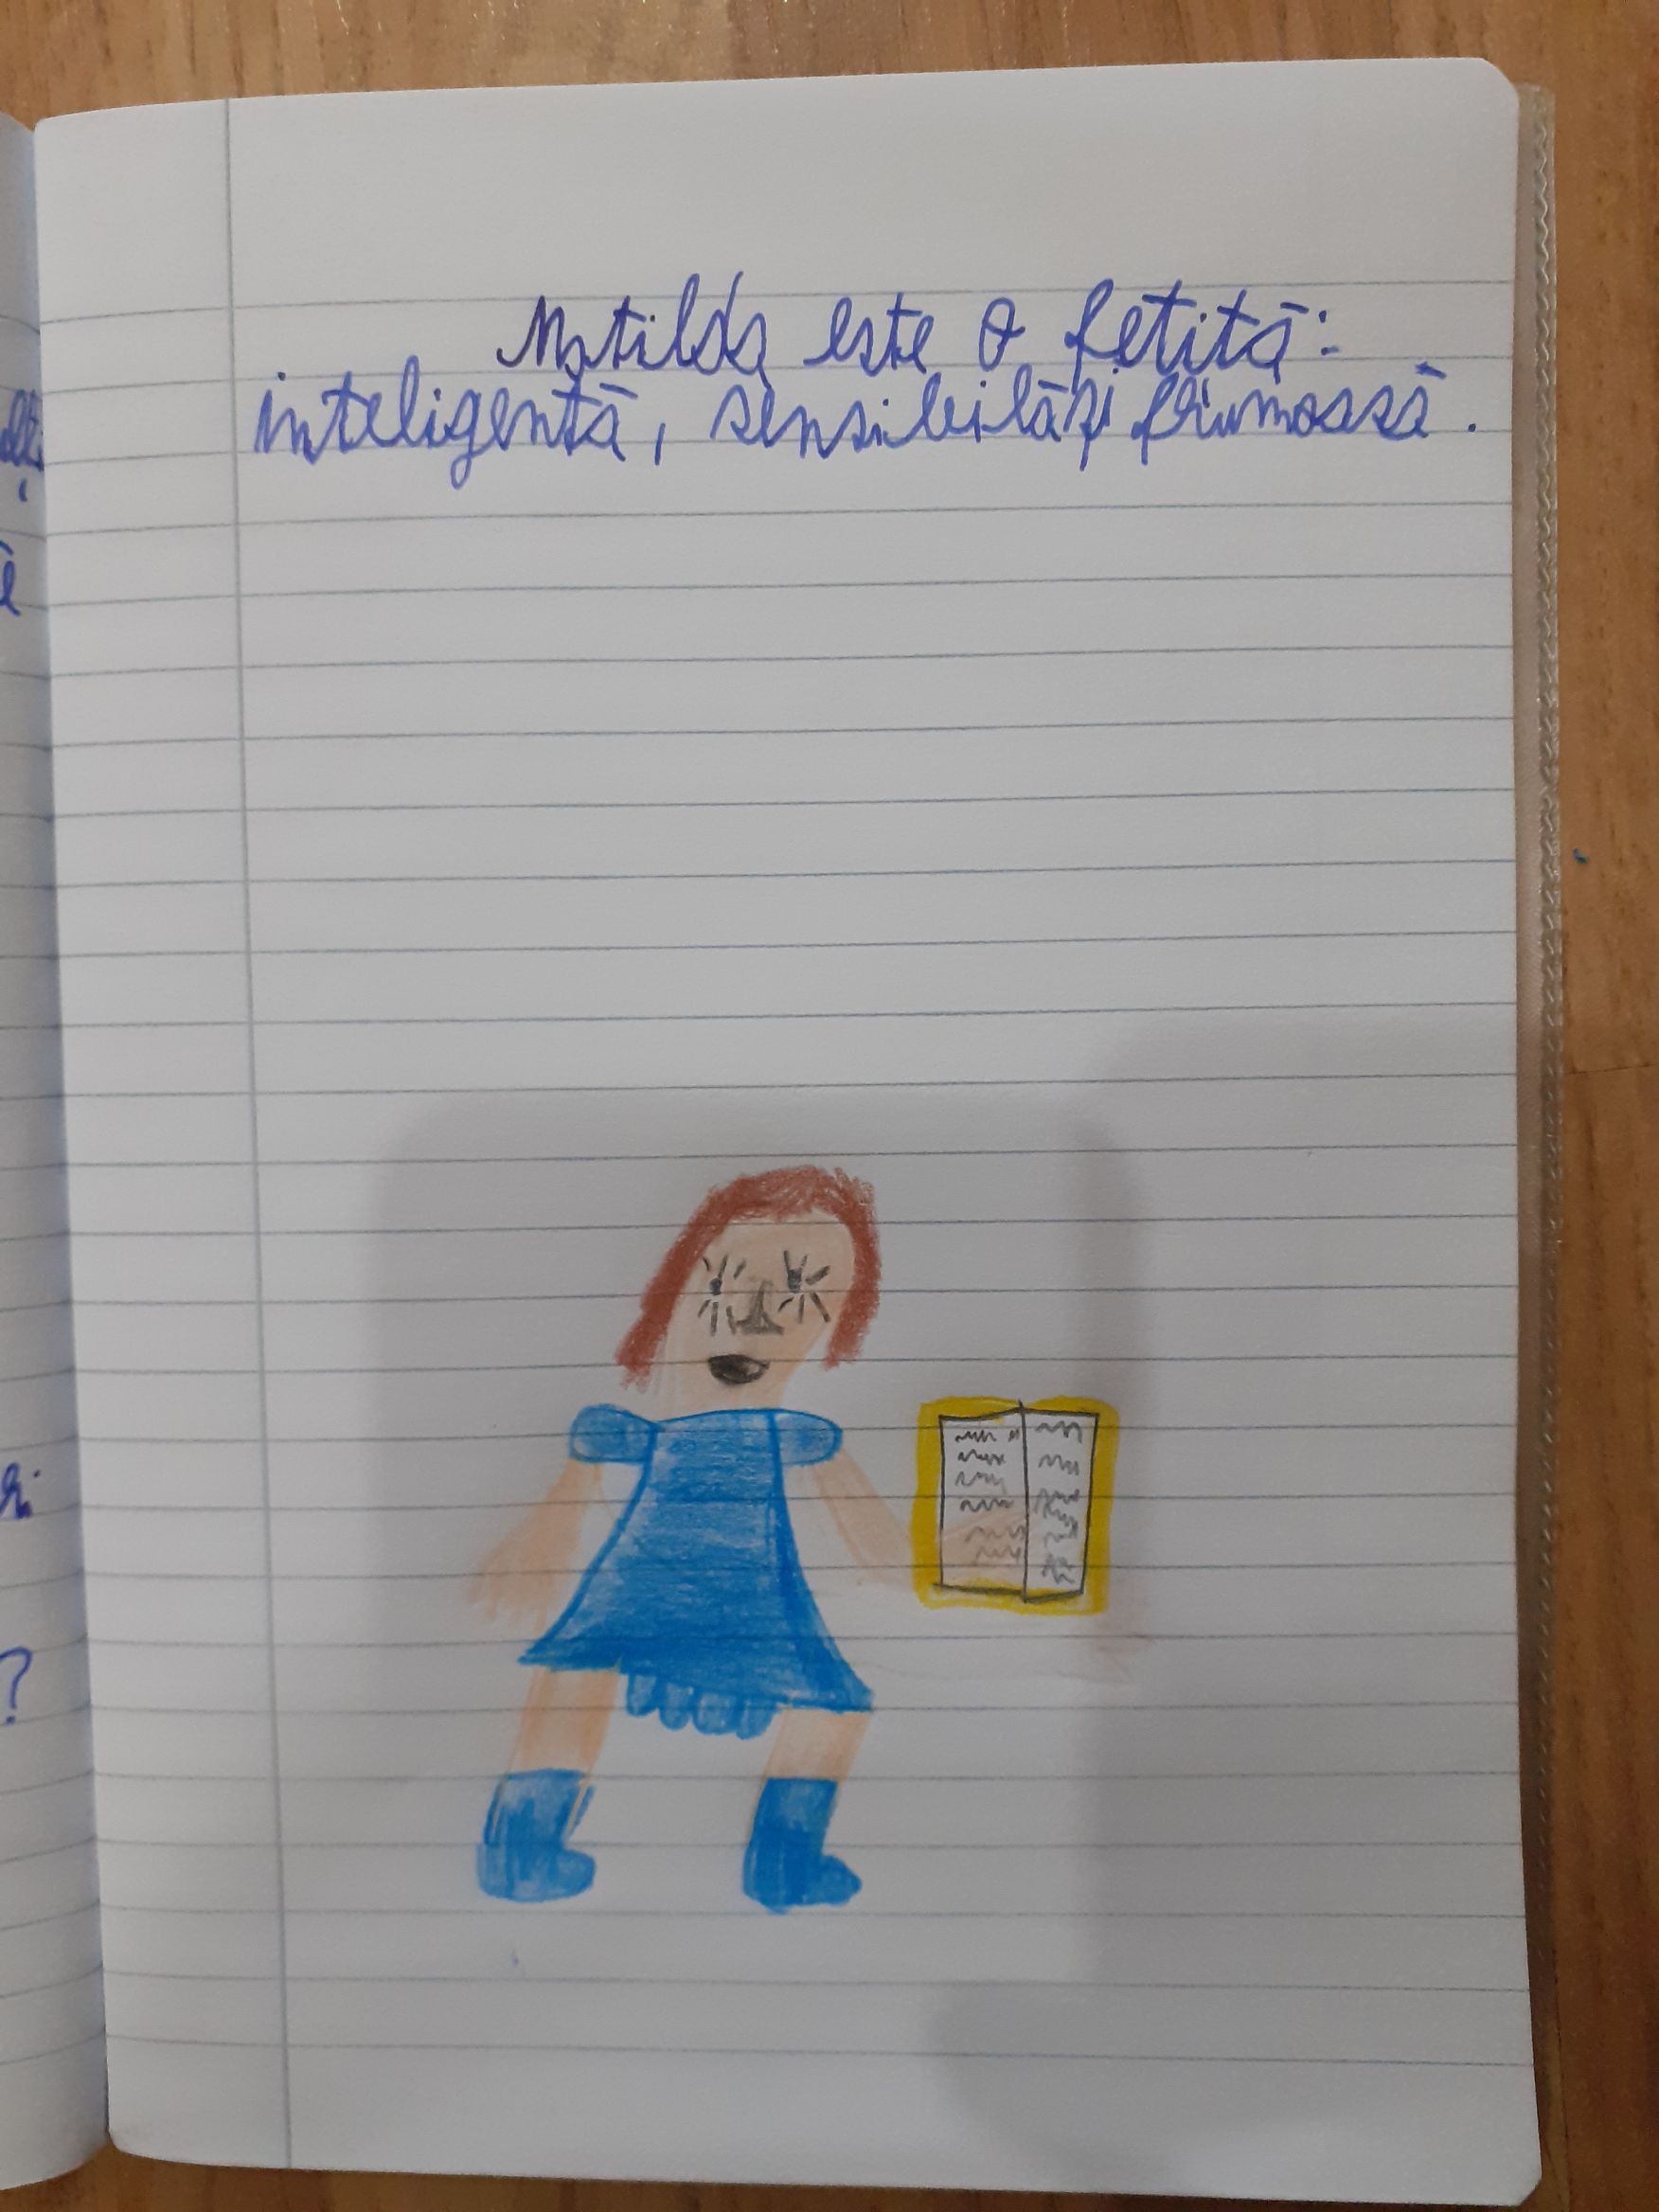 Matilda este o fetită:
inteligentă, sensibilă și frumoasă.
?